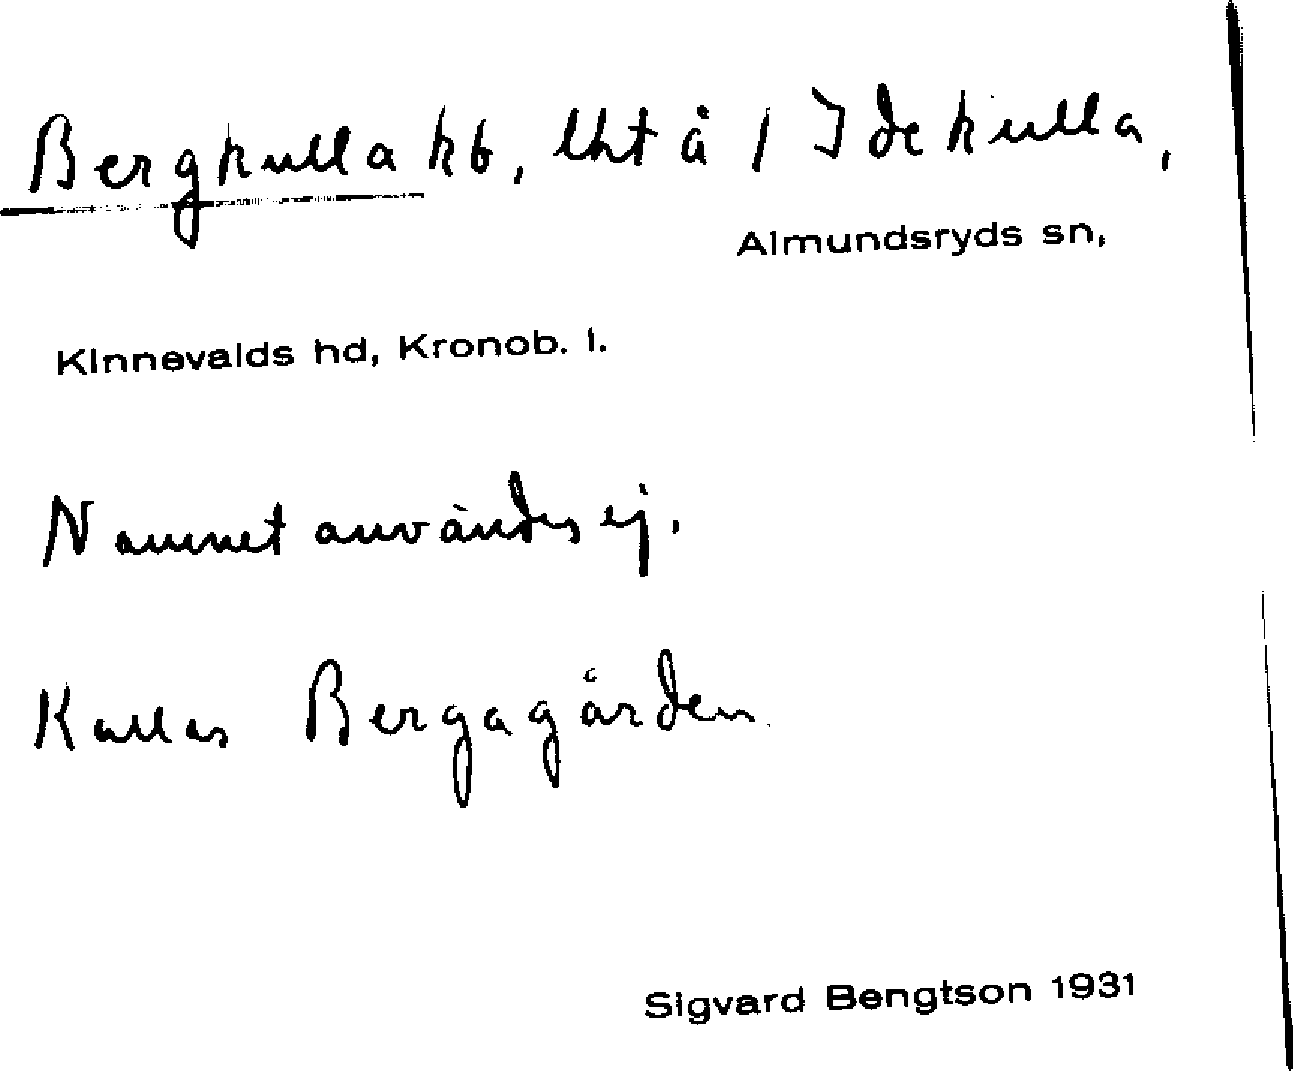 Bergkulla kb, lht å 1 Idekulla,
Almundsryds sn,
Kinnevalds hd, Kronob. l.
Namnet användes ej.
Kallas Bergagården.
Sigvard Bengtson 1931